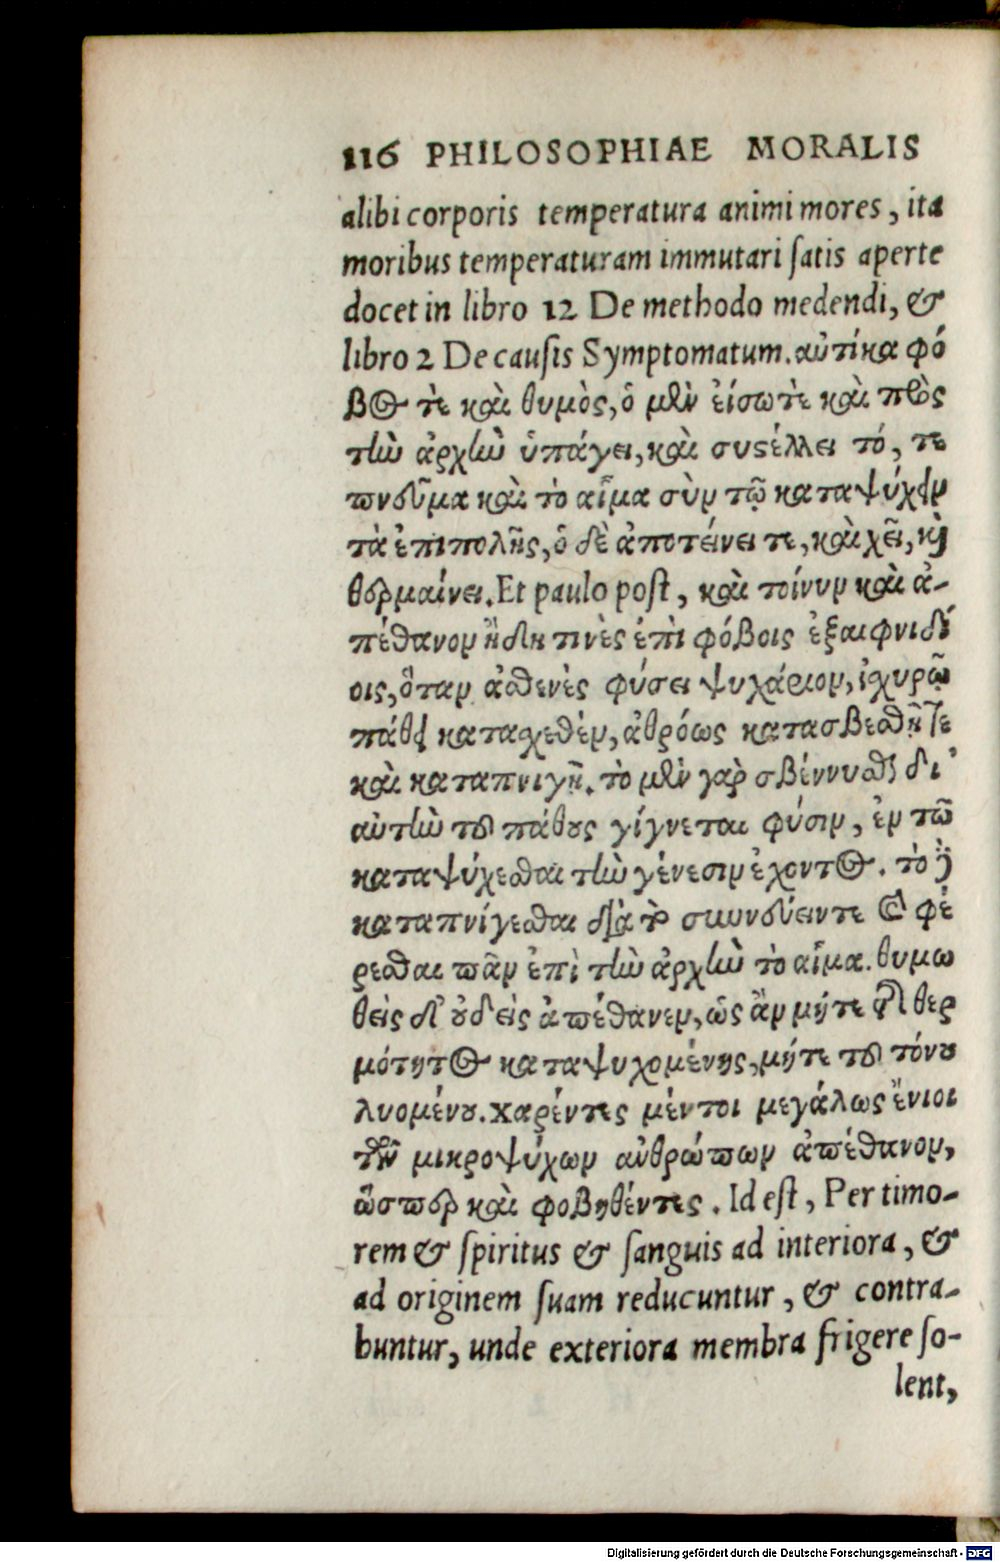 116 PHILOSOPHIAE MORALIS
alibi corporis temperatura animi mores, ita
moribus temperaturam immutari ſatis aperte
docet in libro 12 De methodo medendi, &
libro 2 De cauſis Symptomatum. αὐτίκα φό
βος τὲ καὶ θυμὸς, ὁ μὲν ἐίσω τὲ καὶ πρὸς
τὴν ἀρχὴν ὑπάγει, καὶ συστέλλει τό, τε
πνεῦμα καὶ τὸ αἷμα σὺν τῷ καταψύχειν
τὰ ἐπιπολῆς, ὁ δὲ ἀποτείνει τε, καὶ χεῖ, καὶ
θερμαίνει. Et paulo poſt, καὶ τοίνυν καὶ ἀ-
πέθανον ἤδη τινὲς ἐπὶ φόβοις ἐξαιφνιδί
οις, ὅταν ἀσθενὲς φύσει ψυχάριον, ἰσχυρῷ
πάθει κατασχεθὲν, ἀθρόως κατασβεσθῇ τε
καὶ καταπνιγῇ. τὸ μὲν γὰρ σβέννυσθαι δι᾽
αὐτὴν τοῦ πάθους γίγνεται φύσιν, ἐν τῷ
καταψύχεσθαι τὴν γένεσιν ἔχοντος. τὸ δὲ
καταπνίγεσθαι διὰ τὸ συννεύειν τε καὶ φέ
ρεσθαι πᾶν ἐπὶ τὴν ἀρχὴν τὸ αἷμα. θυμω
θεὶς δ᾽ οὐδεὶς ἀπέθανεν, ὡς ἂν μήτε τῆς θερ
μότητος καταψυχομένης, μήτε τοῦ τόνου
λυομένου. χαρέντες μέντοι μεγάλως ἔνιοι
τῶν μικροψύχων ἀνθρώπων ἀπέθανον,
ὥσπερ καὶ φοβηθέντες. Id eſt, Per timo-
rem & ſpiritus & ſanguis ad interiora, &
ad originem ſuam reducuntur, & contra-
buntur, unde exteriora membra frigere ſo-
lent,
Digitalisierung gefördert durch die Deutsche Forschungsgemeinschaft - DFG